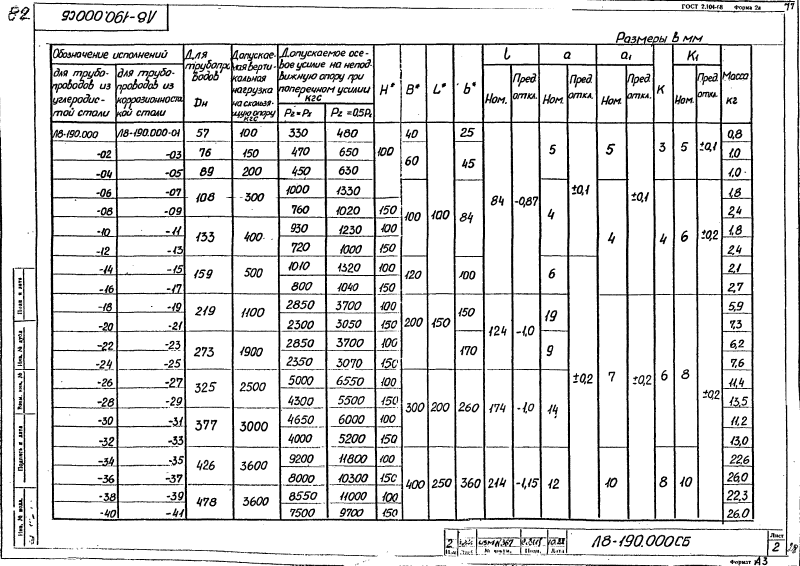 82
Л8-190.000СБ
ГОСТ 2.104-68 Форма 2а
Размеры в мм
Обозначение исполнений
для трубопроводов из углеродистой стали
для трубопроводов из коррозионност. стали
Для трубопроводов Dн
Допускаемая вертикальная нагрузка на скользящую опору кгс
Допускаемое осевое усилие на неподвижную опору при поперечном усилии кгс
P₂=P₂ P₂=0,5P₂
H* B* L* b* l a a₁ K K₁ Масса кг
Ном. Пред. откл. Ном. Пред. откл. Ном. Пред. откл. Ном. Пред. откл.
Л8-190.000 Л8-190.000-01 57 100 330 480 100 40 100 25 84 -0,87 5 ±0,1 5 ±0,1 3 5 ±0,1 0,8
-02 -03 76 150 470 650 60 45 1,0
-04 -05 89 200 450 630 1,0
-06 -07 108 300 1000 1330 100 84 4 4 4 6 ±0,2 1,8
-08 -09 760 1020 150 2,4
-10 -11 133 400 930 1230 100 1,8
-12 -13 720 1000 150 2,4
-14 -15 159 500 1010 1320 100 120 100 6 ±0,2 2,1
-16 -17 800 1040 150 2,7
-18 -19 219 1100 2850 3700 100 200 150 150 124 -1,0 19 7 ±0,2 6 8 ±0,2 5,9
-20 -21 2300 3050 150 7,3
-22 -23 273 1900 2850 3700 100 170 9 6,2
-24 -25 2350 3070 150 7,6
-26 -27 325 2500 5000 6550 100 300 200 260 174 -1,0 14 11,4
-28 -29 4300 5500 150 13,5
-30 -31 377 3000 4650 6000 100 11,2
-32 -33 4000 5200 150 13,0
-34 -35 426 3600 9200 11800 100 400 250 360 214 -1,15 12 10 8 10 22,6
-36 -37 8000 10300 150 26,0
-38 -39 478 3600 8550 11000 100 22,3
-40 -41 7500 9700 150 26.0
Подп. и дата
Инв. № дубл.
Взам. инв. №
Подпись и дата
Инв. № подл.
2
№ докум. Подп. Дата
Л8-190.000СБ
Лист
2
28
Формат А3